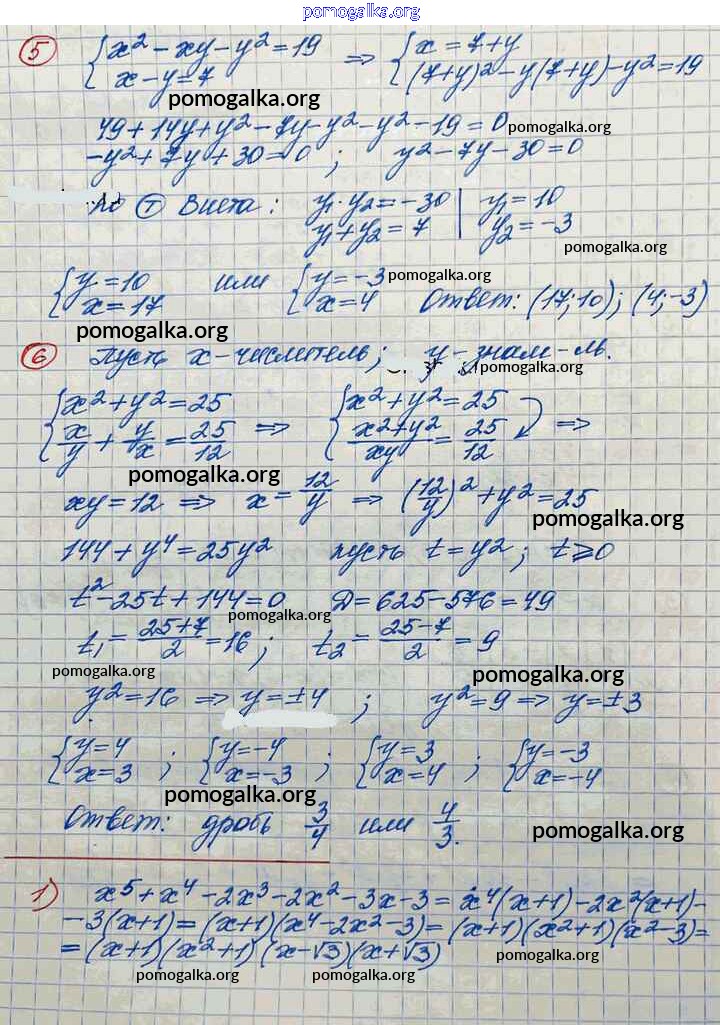 pomogalka.org
5 { x² - xy - y² = 19 ⇒ { x = 7 + y
x - y = 7 (7+y)² - y(7+y) - y² = 19
pomogalka.org
49 + 14y + y² - 7y - y² - y² - 19 = 0 pomogalka.org
-y² + 7y + 30 = 0 ; y² - 7y - 30 = 0
По Т Виета: y₁·y₂ = -30 | y₁ = 10
y₁ + y₂ = 7 | y₂ = -3
pomogalka.org
{ y = 10 или { y = -3 pomogalka.org
x = 17 x = 4 Ответ: (17; 10); (4; -3)
pomogalka.org
6 Пусть x - числитель; y - знам-ль.
pomogalka.org
{ x² + y² = 25 ⇒ { x² + y² = 25 ⇒
x/y + y/x = 25/12 (x² + y²)/xy = 25/12
pomogalka.org
xy = 12 ⇒ x = 12/y ⇒ (12/y)² + y² = 25
pomogalka.org
144 + y⁴ = 25y² пусть t = y² ; t ⩾ 0
t² - 25t + 144 = 0 D = 625 - 576 = 49
pomogalka.org
t₁ = (25+7)/2 = 16 ; t₂ = (25-7)/2 = 9
pomogalka.org pomogalka.org
y² = 16 ⇒ y = ±4 ; y² = 9 ⇒ y = ±3
{ y = 4 ; { y = -4 ; { y = 3 ; { y = -3
x = 3 x = -3 x = 4 x = -4
pomogalka.org
Ответ: дробь 3/4 или 4/3.
pomogalka.org
1) x⁵ + x⁴ - 2x³ - 2x² - 3x - 3 = x⁴(x+1) - 2x²(x+1) -
- 3(x+1) = (x+1)(x⁴ - 2x² - 3) = (x+1)(x²+1)(x²-3) =
= (x+1)(x²+1)(x-√3)(x+√3)
pomogalka.org
pomogalka.org pomogalka.org